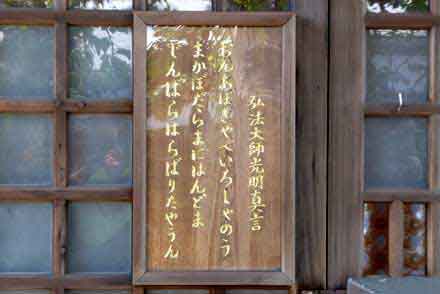 弘法大師光明真言
おんあぼきやべいろしやのう
まかぼだらまにはんどま
じんばらはらばりたやうん